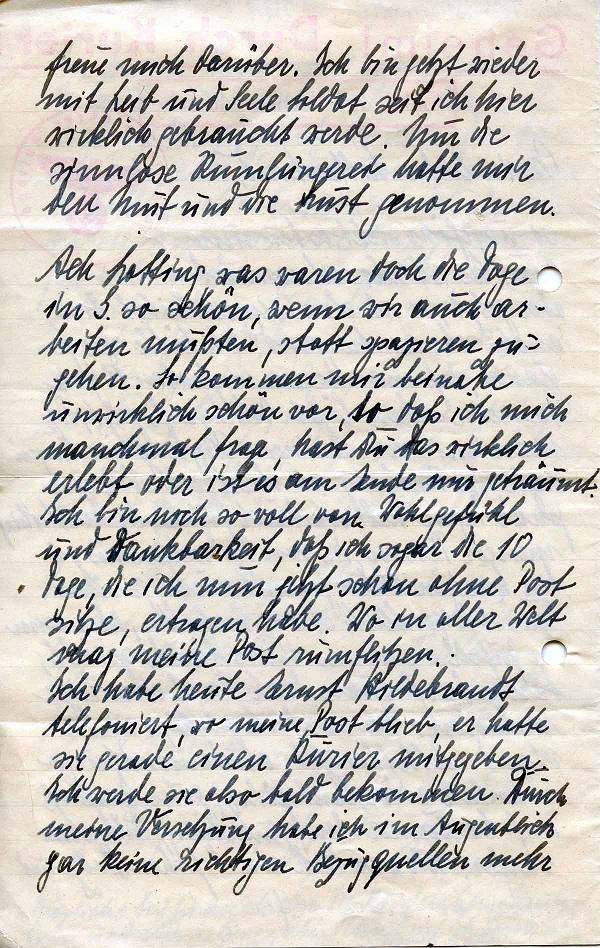 freue mich darüber. Ich bin jetzt wieder
mit Leib und Seele Soldat seit ich hier
wirklich gebraucht werde. Nur die
sinnlose Rumhungerei hatte mir
den Mut und die Lust genommen.
Ach was waren doch die Tage
in S. so schön, wenn wir auch ar-
beiten mußten, statt spazieren zu=
gehen. So kommen mir beinahe
unwirklich schön vor, so daß ich mich
manchmal frag, hast Du das wirklich
erlebt oder ist es am Ende nur geträumt.
Ich bin noch so voll von Wohlgefühl
und Dankbarkeit, daß ich sogar die 10
Tage, die ich nun jetzt schon ohne Post
sitze, ertragen habe. Wo in aller Welt
mag meine Post rumflitzen.
Ich habe heute Ernst Hildebrandt
telefoniert, wo meine Post blieb, er hatte
sie gerade einen Kurier mitgegeben.
Ich werde sie also bald bekommen. Durch
meine Versetzung habe ich im Augenblick
gar keine richtigen Bezugquellen mehr